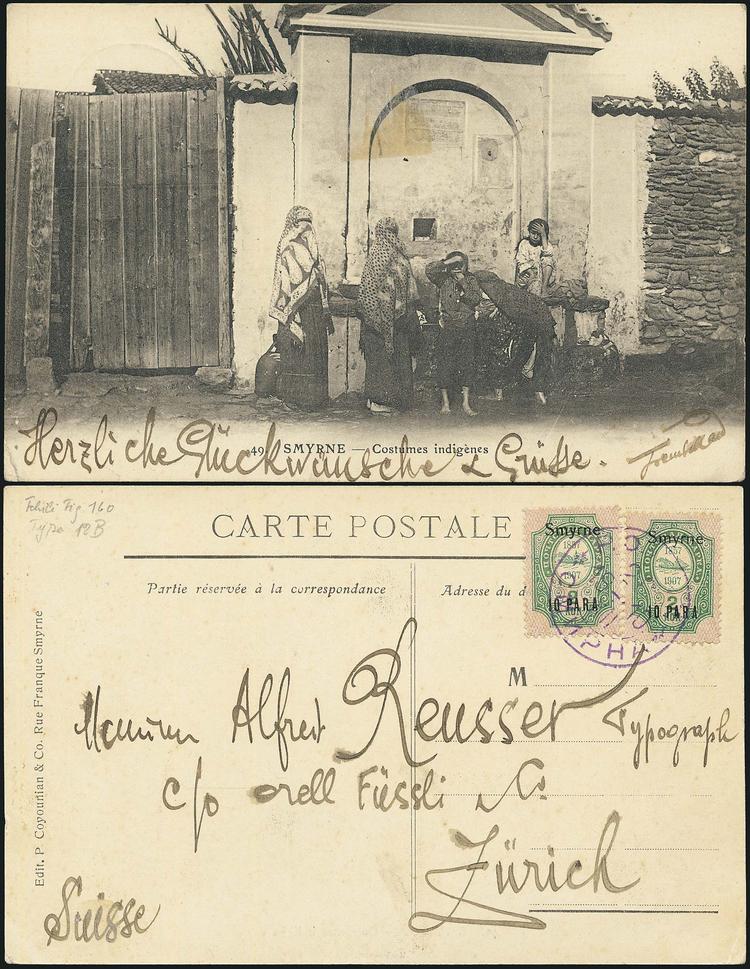 49 SMYRNE — Costumes indigènes
Herzliche Glückwünsche & Grüsse.
Tchili Fig. 160
Type 12B
CARTE POSTALE
Partie réservée à la correspondance
Adresse du d
Smyrne Smyrne
1857 1857
1907 1907
2 2
10 PARA 10 PARA
M
Monsieur Alfred Reusser Typograph
c/o Orell Füssli & Co.
Zürich
Suisse
Edit. P. Coyounian & Co. Rue Franque Smyrne